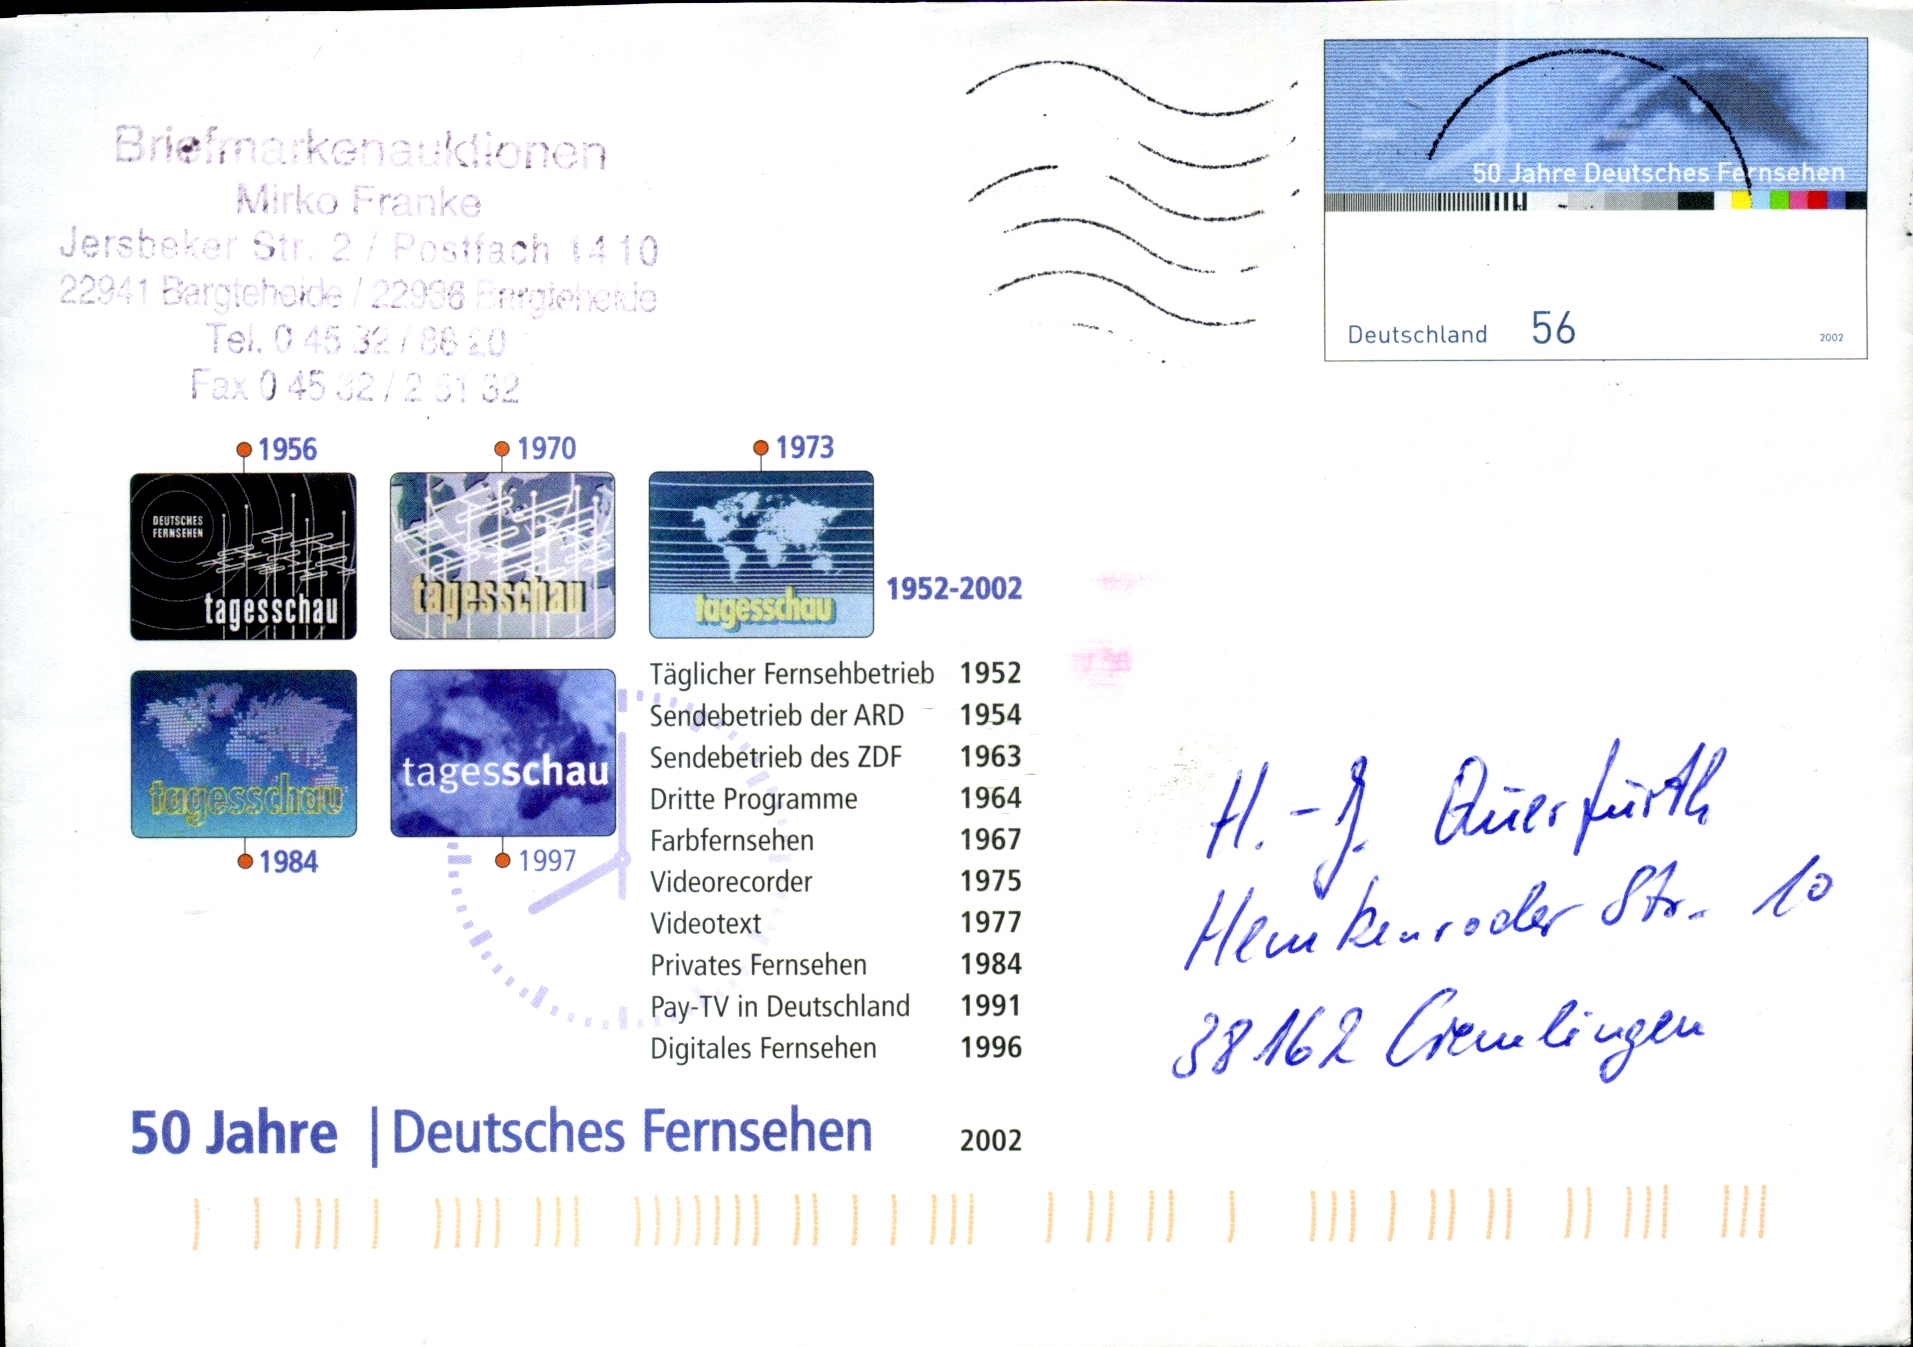 Briefmarkenauktionen
Mirko Franke
Jersbeker Str. 2 / Postfach 1410
22941 Bargteheide / 22936 Bargteheide
Tel. 0 45 32 / 86 20
Fax 0 45 32 / 2 51 32
50 Jahre Deutsches Fernsehen
Deutschland 56 2002
1956 1970 1973
DEUTSCHES
FERNSEHEN
tagesschau
tagesschau
tagesschau
1952-2002
tagesschau
tagesschau
1984 1997
Täglicher Fernsehbetrieb 1952
Sendebetrieb der ARD 1954
Sendebetrieb des ZDF 1963
Dritte Programme 1964
Farbfernsehen 1967
Videorecorder 1975
Videotext 1977
Privates Fernsehen 1984
Pay-TV in Deutschland 1991
Digitales Fernsehen 1996
50 Jahre | Deutsches Fernsehen 2002
H.-J. Querfurth
Hemkenroder Str. 10
38162 Cremlingen